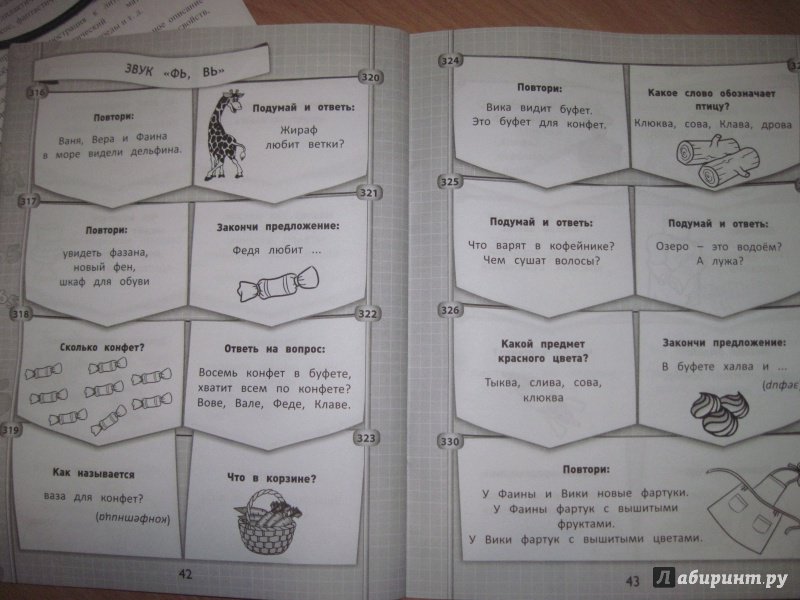 ЗВУК «ФЬ, ВЬ»
316
Повтори:
Ваня, Вера и Фаина
в море видели дельфина.
320
Подумай и ответь:
Жираф
любит ветки?
317
Повтори:
увидеть фазана,
новый фен,
шкаф для обуви
321
Закончи предложение:
Федя любит ...
318
Сколько конфет?
322
Ответь на вопрос:
Восемь конфет в буфете,
хватит всем по конфете?
Вове, Вале, Феде, Клаве.
319
Как называется
ваза для конфет?
(конфетница)
323
Что в корзине?
42
324
Повтори:
Вика видит буфет.
Это буфет для конфет.
Какое слово обозначает
птицу?
Клюква, сова, Клава, дрова
325
Подумай и ответь:
Что варят в кофейнике?
Чем сушат волосы?
Подумай и ответь:
Озеро – это водоём?
А лужа?
326
Какой предмет
красного цвета?
Тыква, слива, сова,
клюква
Закончи предложение:
В буфете халва и ...
330
Повтори:
У Фаины и Вики новые фартуки.
У Фаины фартук с вышитыми
фруктами.
У Вики фартук с вышитыми цветами.
43
Лабиринт.ру